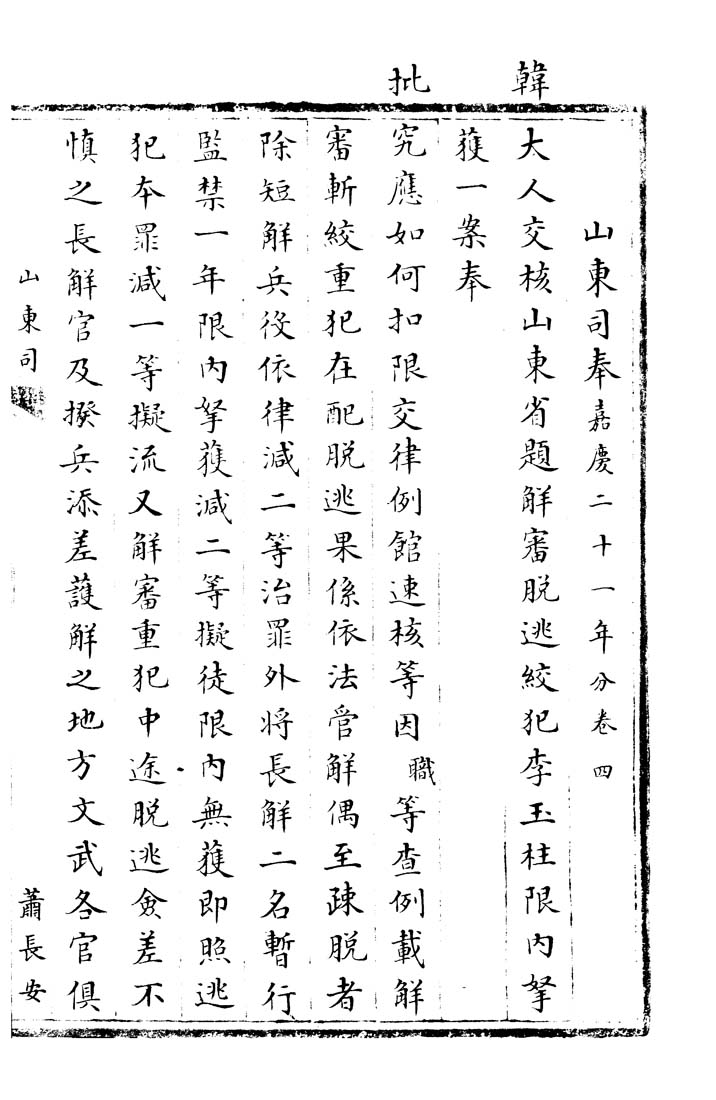 山東司奉嘉慶二十一年分卷四
韓
大人交核山東省題解審脫逃絞犯李玉柱限內拏
獲一案奉
批
究應如何扣限交律例館速核等因職等查例載解
審斬絞重犯在配脫逃果係依法管解偶至疎脫者
除短解兵役依律減二等治罪外將長解二名暫行
監禁一年限內拏獲減二等擬徒限內無獲即照逃
犯本罪減一等擬流又解審重犯中途脫逃僉差不
慎之長解官及撥兵添差護解之地方文武各官俱
山東司
蕭長安